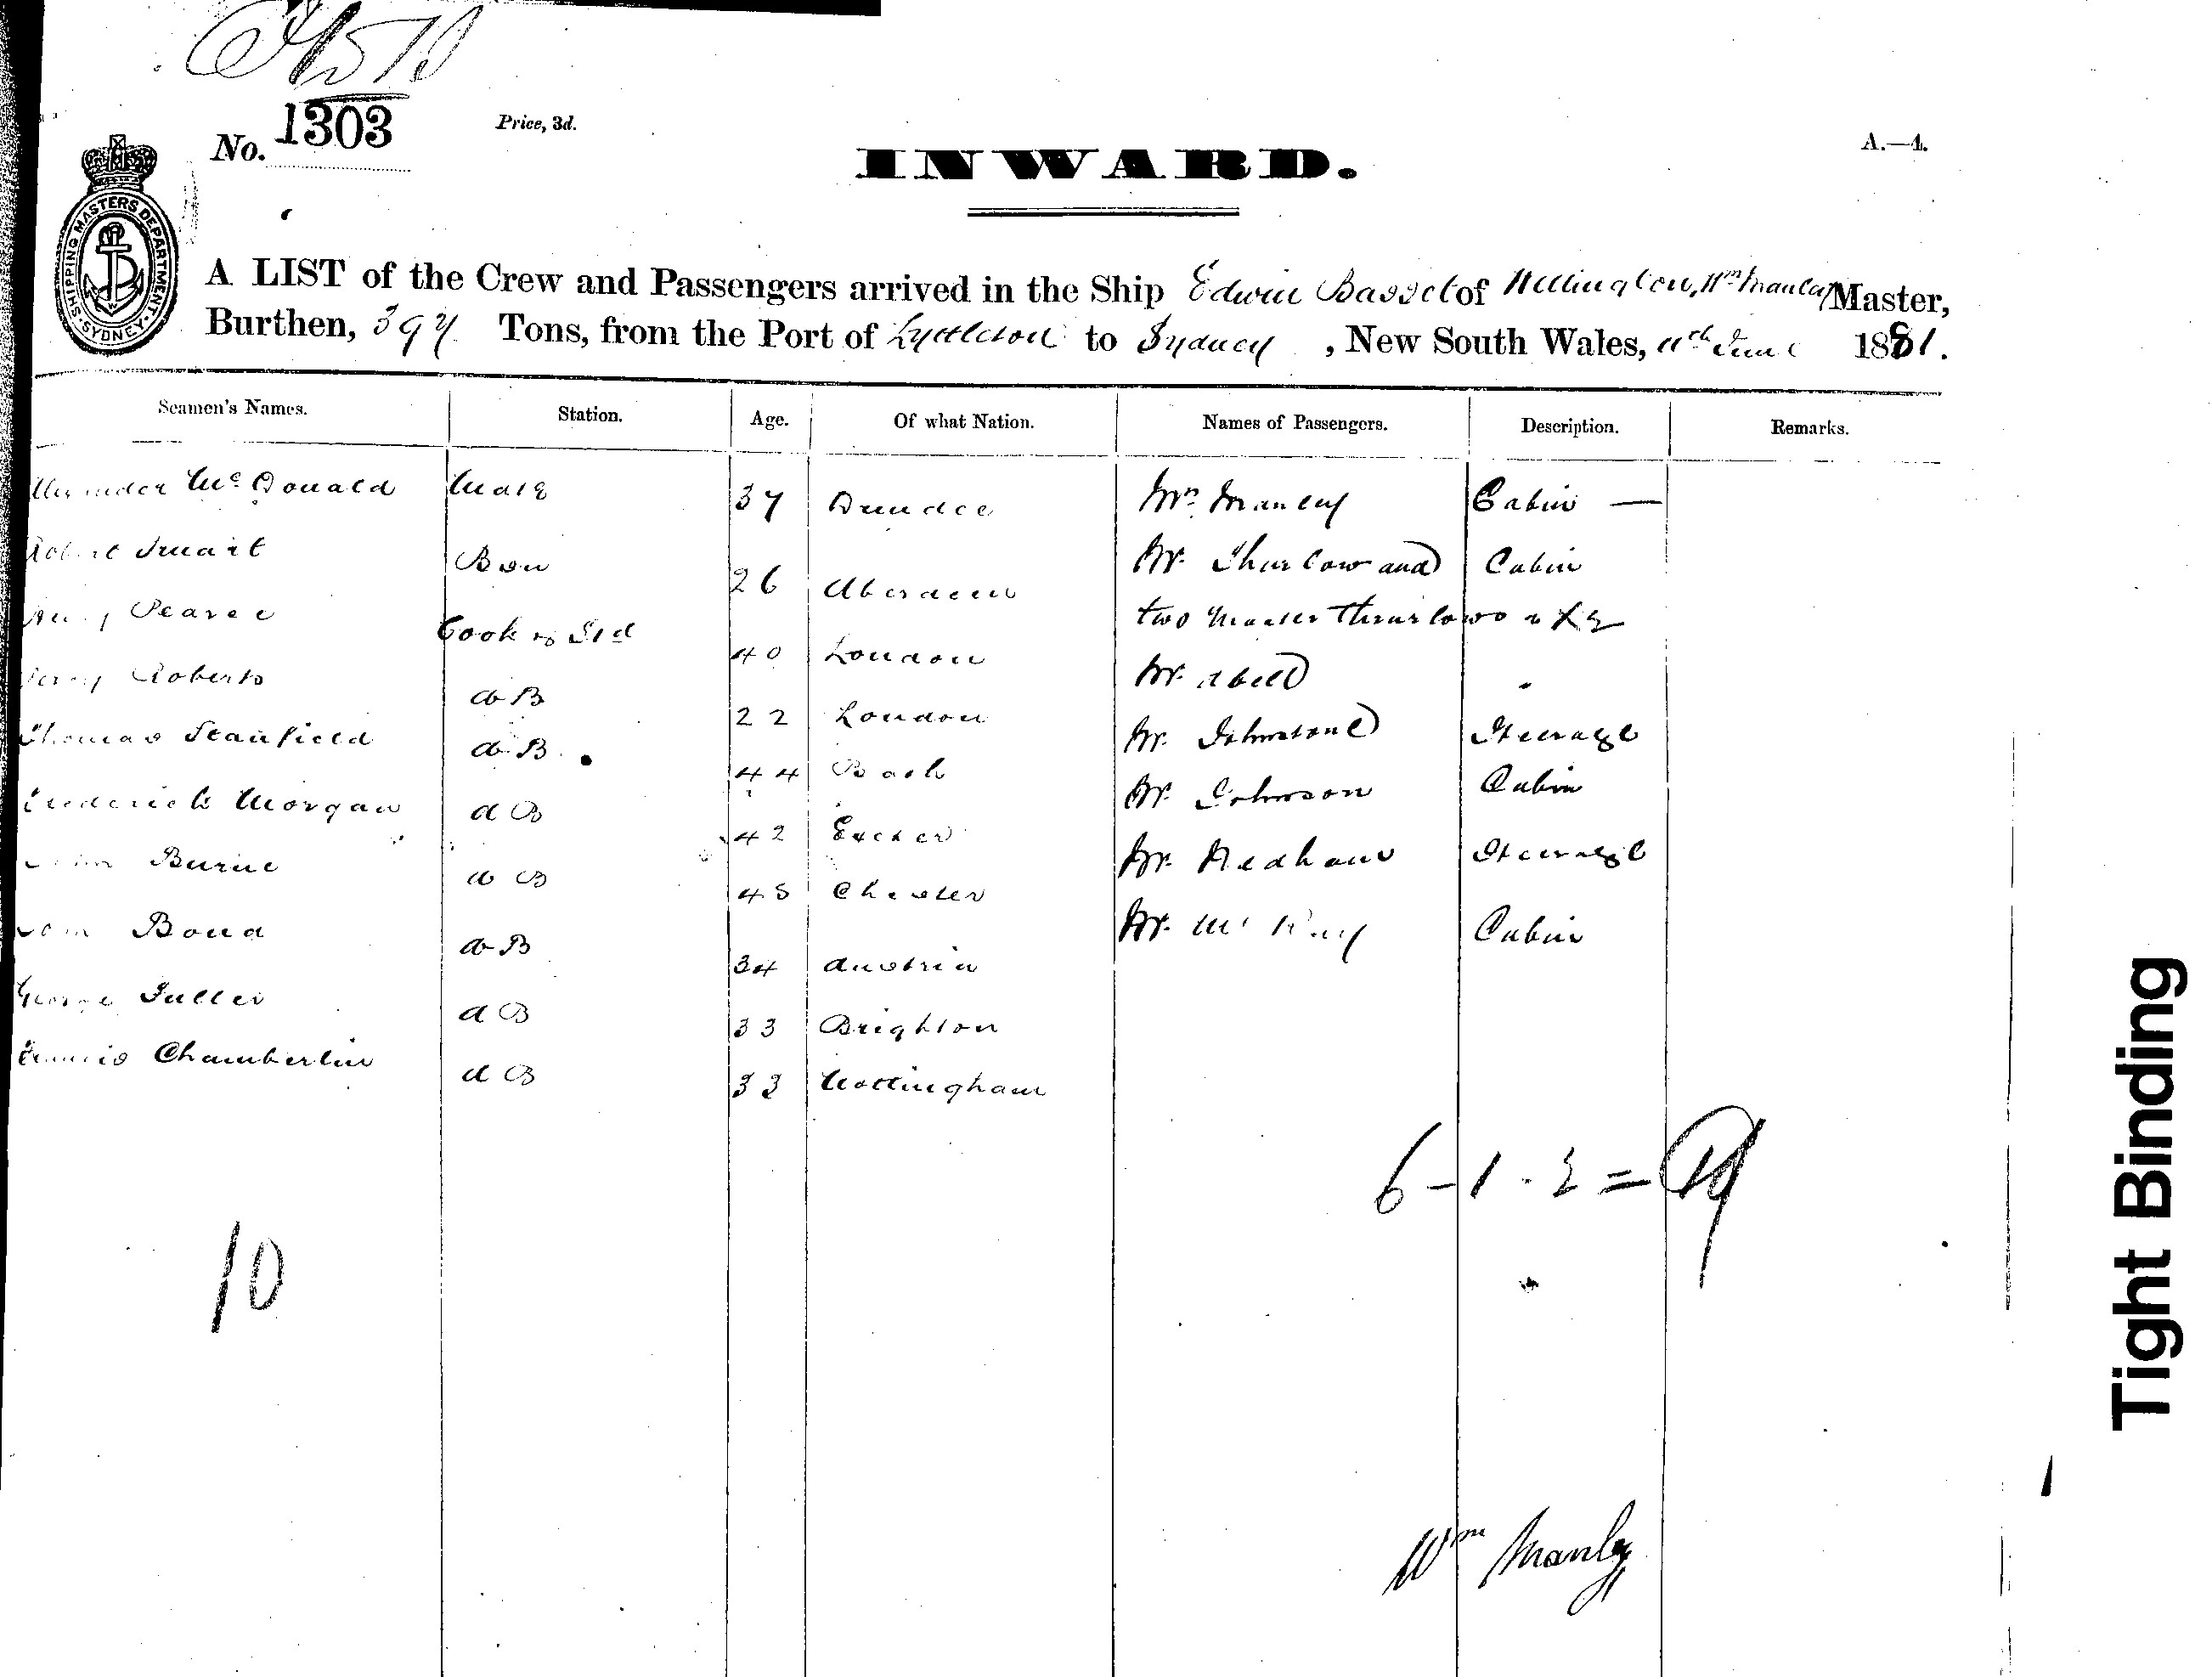 No. 1303
Price, 3d.
A.—4.
INWARD.
SHIPPING MASTERS DEPARTMENT · SYDNEY ·
A LIST of the Crew and Passengers arrived in the Ship Edwin Basset of Wellington, Wm Manley Master,
Burthen, 397 Tons, from the Port of Lyttleton to Sydney, New South Wales, 11th June 1881.
Seamen's Names. Station. Age. Of what Nation. Names of Passengers. Description. Remarks.
McDonald Mate 37 Dundee Mrs Manley Cabin —
Robert Smart Bsn 26 Aberdeen Mr. Thurlow and Cabin
Pearce Cook & Std 40 London two Master Thurlows
Roberts AB 22 London Mr. Abell
Thomas Stanfield AB 44 Bath Mr. Johnstone Steerage
Frederick Morgan AB 42 Exeter Mr. Johnson Cabin
Burne AB 45 Chester Mr. Steerage
Bond AB 34 Austria Mr. Mc Cabin
George Fuller AB 33 Brighton
Francis Chamberlin AB 33 Nottingham
6 - 1 . 2 =
10
Wm Manley
Tight Binding